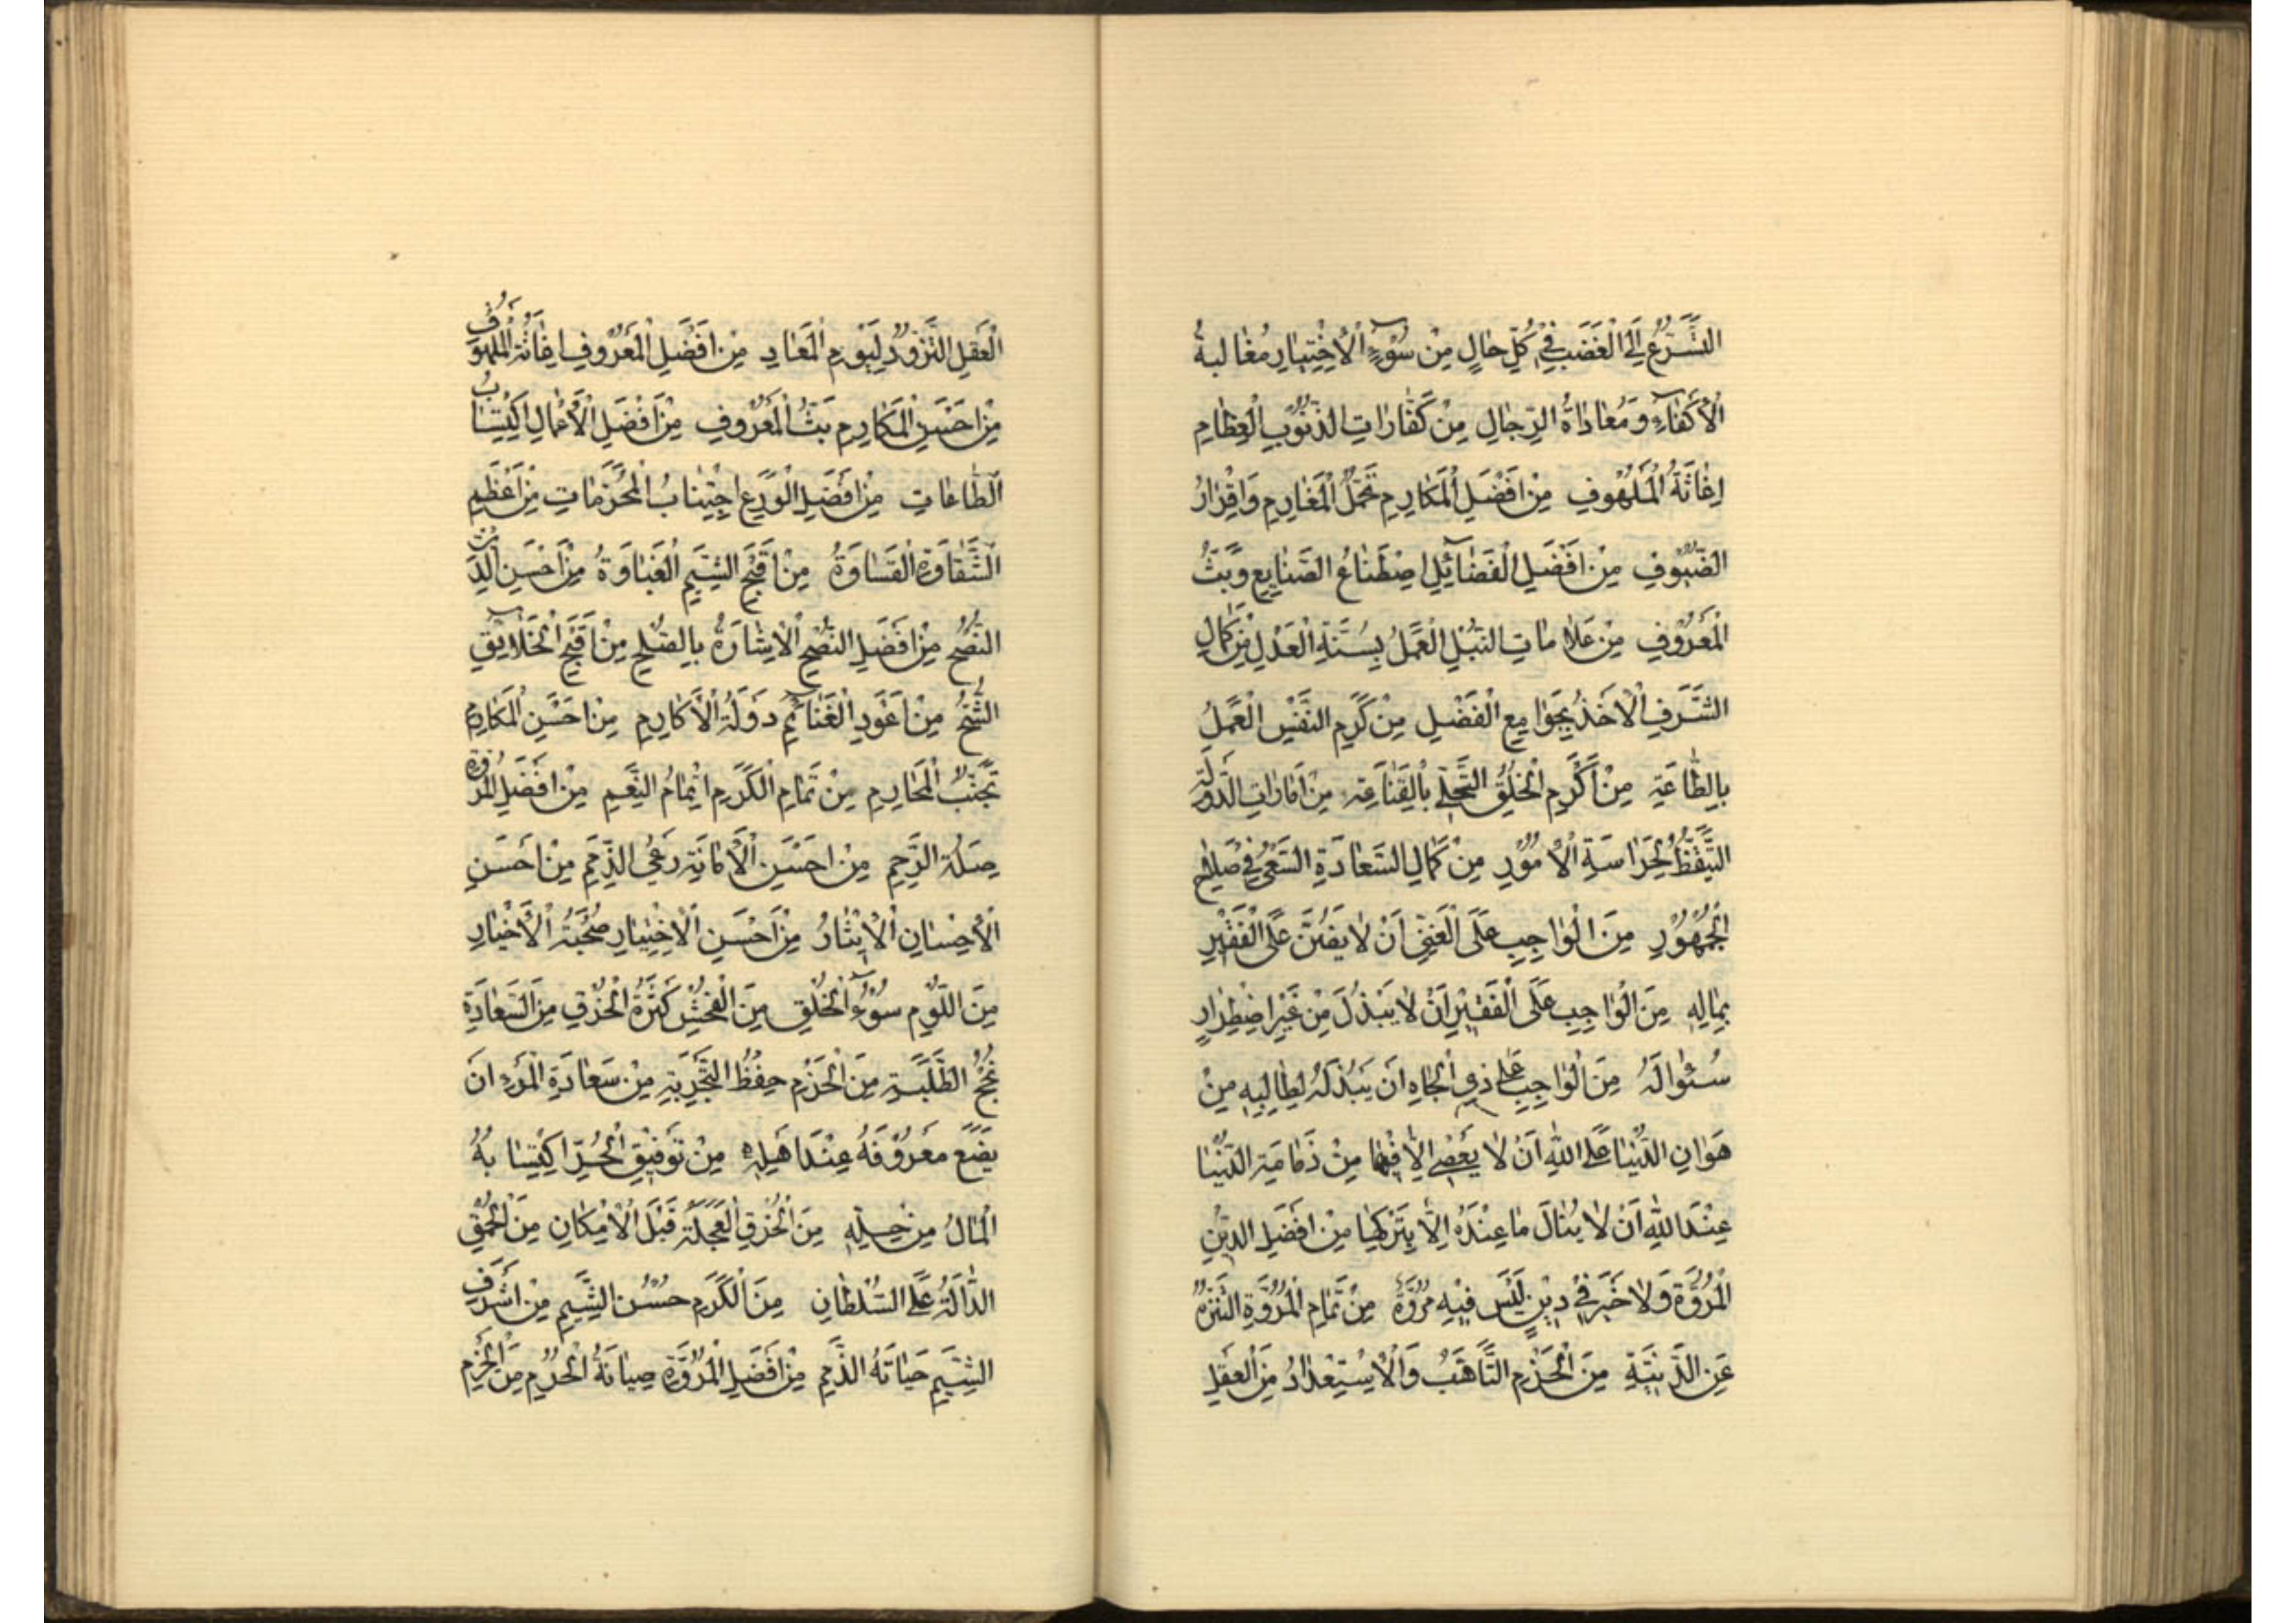 التَّسَرُّعُ اِلَى الْغَضَبِ فِيْ كُلِّ حَالٍ مِنْ سُوْۤءِ الْاِخْتِيَارِ مُغَالَبَةُ
الْاَكْفَاۤءِ وَمُعَادَاةُ الرِّجَالِ مِنْ كَفَّارَاتِ الذُّنُوْبِ الْعِظَامِ
اِغَاثَةُ الْمَلْهُوْفِ مِنْ اَفْضَلِ الْمَكَارِمِ تَحَمُّلُ الْمَغَارِمِ وَاِقْرَارُ
الضُّيُوْفِ مِنْ اَفْضَلِ الْفَضَاۤئِلِ اصْطِنَاعُ الصَّنَايِعِ وَبَثُّ
الْمَعْرُوْفِ مِنْ عَلَامَاتِ النُّبْلِ الْعَمَلُ بِسُنَّةِ الْعَدْلِ مِنْ كَمَالِ
الشَّرَفِ الْاَخْذُ بِجَوَامِعِ الْفَضْلِ مِنْ كَرَمِ النَّفْسِ الْعَمَلُ
بِالطَّاعَةِ مِنْ اَكْرَمِ الْخُلُقِ التَّحَلِّيْ بِالْقَنَاعَةِ مِنْ اَمَارَاتِ الدَّوْلَةِ
التَّيَقُّظُ لِحَرَاسَةِ الْاُمُوْرِ مِنْ كَمَالِ السَّعَادَةِ السَّعْيُ فِيْ صَلَاحِ
الْجُمْهُوْرِ مِنَ الْوَاجِبِ عَلَى الْغَنِيِّ اَنْ لَا يَضِنَّ عَلَى الْفَقِيْرِ
بِمَالِهِ مِنَ الْوَاجِبِ عَلَى الْفَقِيْرِ اَنْ لَا يَبْذُلَ مِنْ غَيْرِ اضْطِرَارٍ
سُئْوَالَهُ مِنَ الْوَاجِبِ عَلَى ذِي الْجَاهِ اَنْ يَبْذُلَهُ لِطَالِبِهِ مِنْ
هَوَانِ الدُّنْيَا عَلَى اللّٰهِ اَنْ لَا يُعْصٰى اِلَّا فِيْهَا مِنْ ذَمَامَةِ الدُّنْيَا
عِنْدَ اللّٰهِ اَنْ لَا يُنَالَ مَا عِنْدَهُ اِلَّا بِتَرْكِهَا مِنْ اَفْضَلِ الدِّيْنِ
الْمُرُوَّةُ وَلَا خَيْرَ فِيْ دِيْنٍ لَيْسَ فِيْهِ مُرُوَّةٌ مِنْ تَمَامِ الْمُرُوَّةِ التَّنَزُّهُ
عَنِ الدَّنِيَّةِ مِنَ الْحَزْمِ التَّاَهُّبُ وَالْاِسْتِعْدَادُ مِنَ الْعَقْلِ
الْعَقْلِ التَّزَوُّدُ لِيَوْمِ الْمَعَادِ مِنْ اَفْضَلِ الْمَعْرُوْفِ اِغَاثَةُ الْمَلْهُوْفِ
مِنْ اَحْسَنِ الْمَكَارِمِ بَثُّ الْمَعْرُوْفِ مِنْ اَفْضَلِ الْاَعْمَالِ اكْتِسَابُ
الطَّاعَاتِ مِنْ اَفْضَلِ الْوَرَعِ اجْتِنَابُ الْمُحَرَّمَاتِ مِنْ اَعْظَمِ
الشَّقَاوَةِ الْقَسَاوَةُ مِنْ اَقْبَحِ الشِّيَمِ الْغَبَاوَةُ مِنْ اَحْسَنِ الدِّيْنِ
النُّصْحُ مِنْ اَفْضَلِ النُّصْحِ الْاِشَارَةُ بِالصُّلْحِ مِنْ اَقْبَحِ الْخَلَاۤئِقِ
الشُّحُّ مِنْ اَعْوَدِ الْغَنَاۤئِمِ دَوْلَةُ الْاَكَارِمِ مِنْ اَحْسَنِ الْمَكَارِمِ
تَجَنُّبُ الْمَحَارِمِ مِنْ تَمَامِ الْكَرَمِ اِتْمَامُ النِّعَمِ مِنْ اَفْضَلِ الْمُرُوَّةِ
صِلَةُ الرَّحِمِ مِنْ اَحْسَنِ الْاَمَانَةِ رَعْيُ الذِّمَمِ مِنْ اَحْسَنِ
الْاِحْسَانِ الْاِيْثَارُ مِنْ اَحْسَنِ الْاِخْتِيَارِ صُحْبَةُ الْاَخْيَارِ
مِنَ اللُّوْمِ سُوْۤءُ الْخُلُقِ مِنَ الْفُحْشِ كَثْرَةُ الْخُرْقِ مِنَ السَّعَادَةِ
نُجْحُ الطَّلِبَةِ مِنَ الْحَزْمِ حِفْظُ التَّجْرِبَةِ مِنْ سَعَادَةِ الْمَرْءِ اَنْ
يَضَعَ مَعْرُوْفَهُ عِنْدَ اَهْلِهِ مِنْ تَوْفِيْقِ الْحُرِّ اكْتِسَابُهُ
الْمَالَ مِنْ حِلِّهِ مِنَ الْخُرْقِ الْعَجَلَةُ قَبْلَ الْاِمْكَانِ مِنَ الْحُمْقِ
الدَّالَّةُ عَلَى السُّلْطَانِ مِنَ الْكَرَمِ حُسْنُ الشِّيَمِ مِنْ اَشْرَفِ
الشِّيَمِ حَيَاتَهُ الذِّمَمِ مِنْ اَفْضَلِ الْمُرُوَّةِ صِيَانَةُ الْحُرَمِ مِنَ الْحَزْمِ